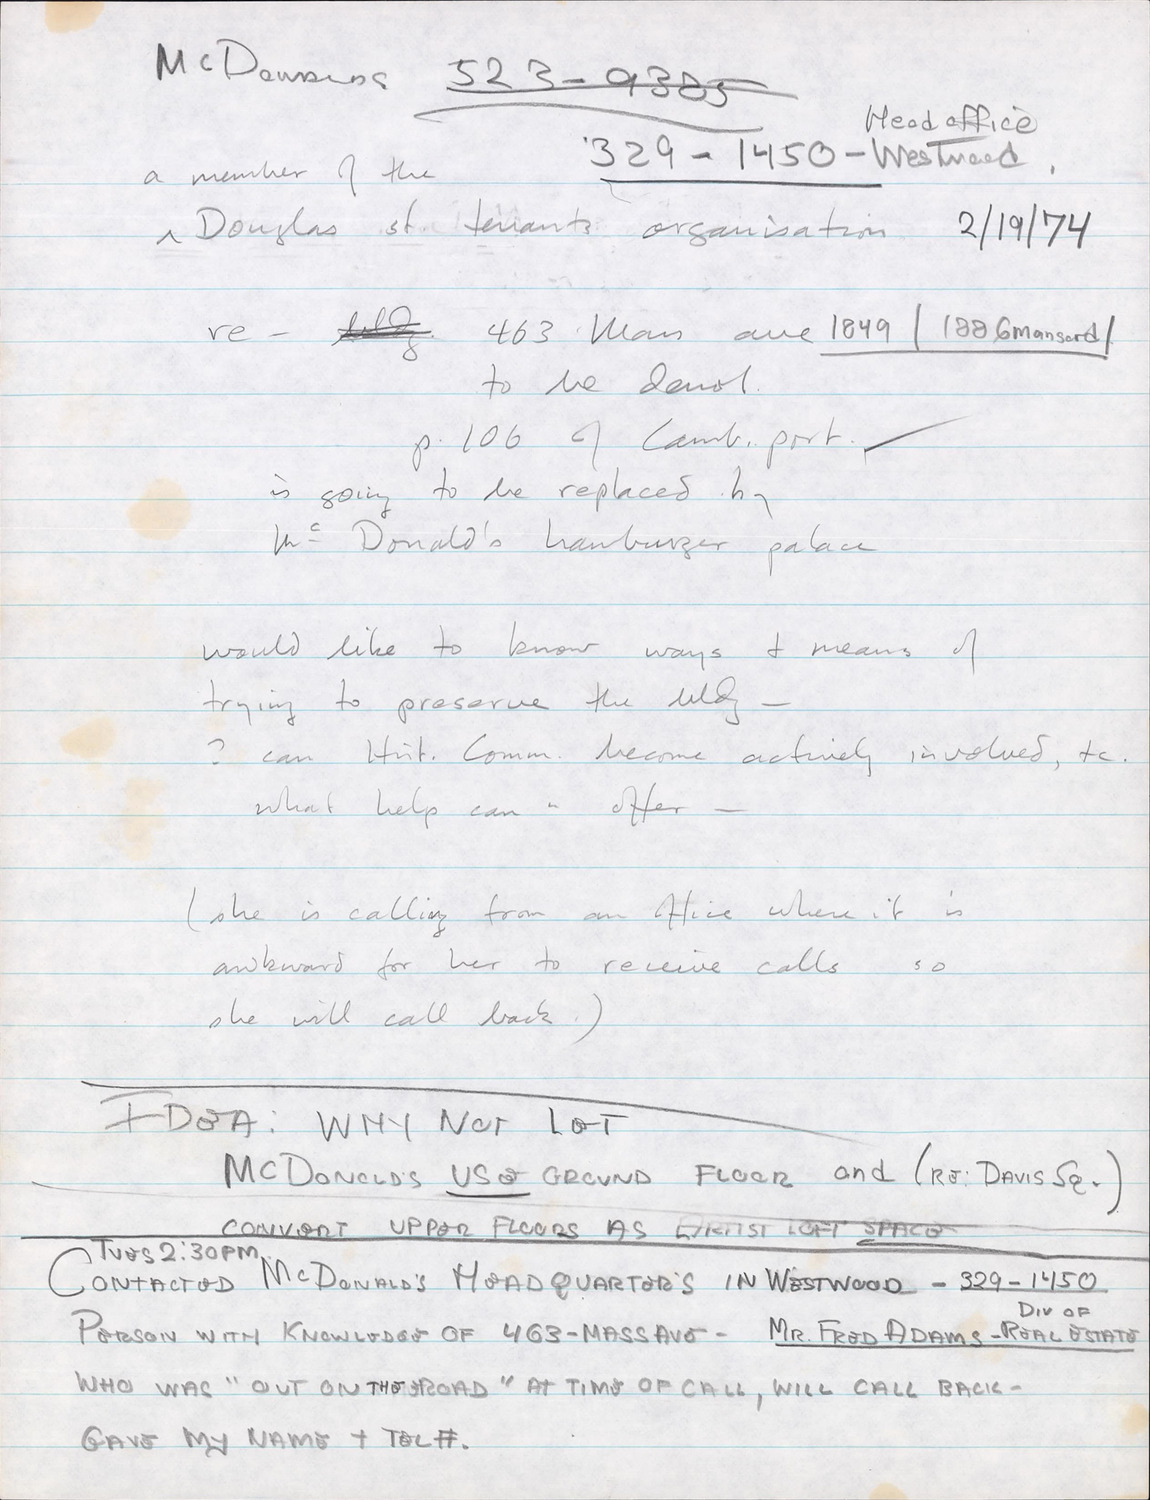 McDonalds 523-9385
Head office
329-1450-Westwood.
a member of the
^ Douglas st. tenants organisation 2/19/74
re - bldg 463 Mass ave 1849 / 1886 mansard /
to be demol.
p. 106 of Camb. port. ✓
is going to be replaced by
McDonald's hamburger palace
would like to know ways & means of
trying to preserve the bldg —
? can Hist. Comm. become actively involved, etc.
what help can " offer —
(she is calling from an office where it is
awkward for her to receive calls so
she will call back.)
IDEA: WHY NOT LET
MCDONALD'S USE GROUND FLOOR and (RE: DAVIS SQ.)
CONVERT UPPER FLOORS AS ARTIST LOFT SPACE
TUES 2:30PM
CONTACTED MCDONALD'S HEADQUARTER'S IN WESTWOOD - 329-1450
PERSON WITH KNOWLEDGE OF 463-MASS AVE - MR. FRED ADAMS - DIV OF REAL ESTATE
WHO WAS "OUT ON THE ROAD" AT TIME OF CALL, WILL CALL BACK -
GAVE MY NAME + TEL #.